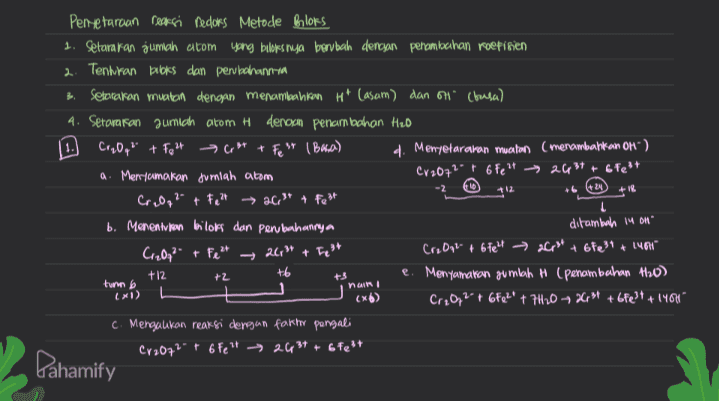 Penyetaraan reaksi redoks Metode Biloks
1. Setarakan jumlah atom yang biloksnya berubah dengan penambahan koefisien
2. Tentukan biloks dan perubahannya
3. Setarakan muatan dengan menambahkan H⁺ (asam) dan OH⁻ (basa)
4. Setarakan jumlah atom H dengan penambahan H₂O
1. Cr₂O₇²⁻ + Fe²⁺ → Cr³⁺ + Fe³⁺ (Basa)
a. Menyamakan jumlah atom
Cr₂O₇²⁻ + Fe²⁺ → 2Cr³⁺ + Fe³⁺
b. Menentukan biloks dan perubahannya
Cr₂O₇²⁻ + Fe²⁺ → 2Cr³⁺ + Fe³⁺
+12 +2 +6 +3
turun 6 naik 1
(x1) (x6)
c. Mengalikan reaksi dengan faktor pengali
Cr₂O₇²⁻ + 6Fe²⁺ → 2Cr³⁺ + 6Fe³⁺
d. Menyetarakan muatan (menambahkan OH⁻)
Cr₂O₇²⁻ + 6Fe²⁺ → 2Cr³⁺ + 6Fe³⁺
-2 +10 +12 +6 +24 +18
ditambah 14 OH⁻
Cr₂O₇²⁻ + 6Fe²⁺ → 2Cr³⁺ + 6Fe³⁺ + 14OH⁻
e. Menyamakan jumlah H (penambahan H₂O)
Cr₂O₇²⁻ + 6Fe²⁺ + 7H₂O → 2Cr³⁺ + 6Fe³⁺ + 14OH⁻
Pahamify